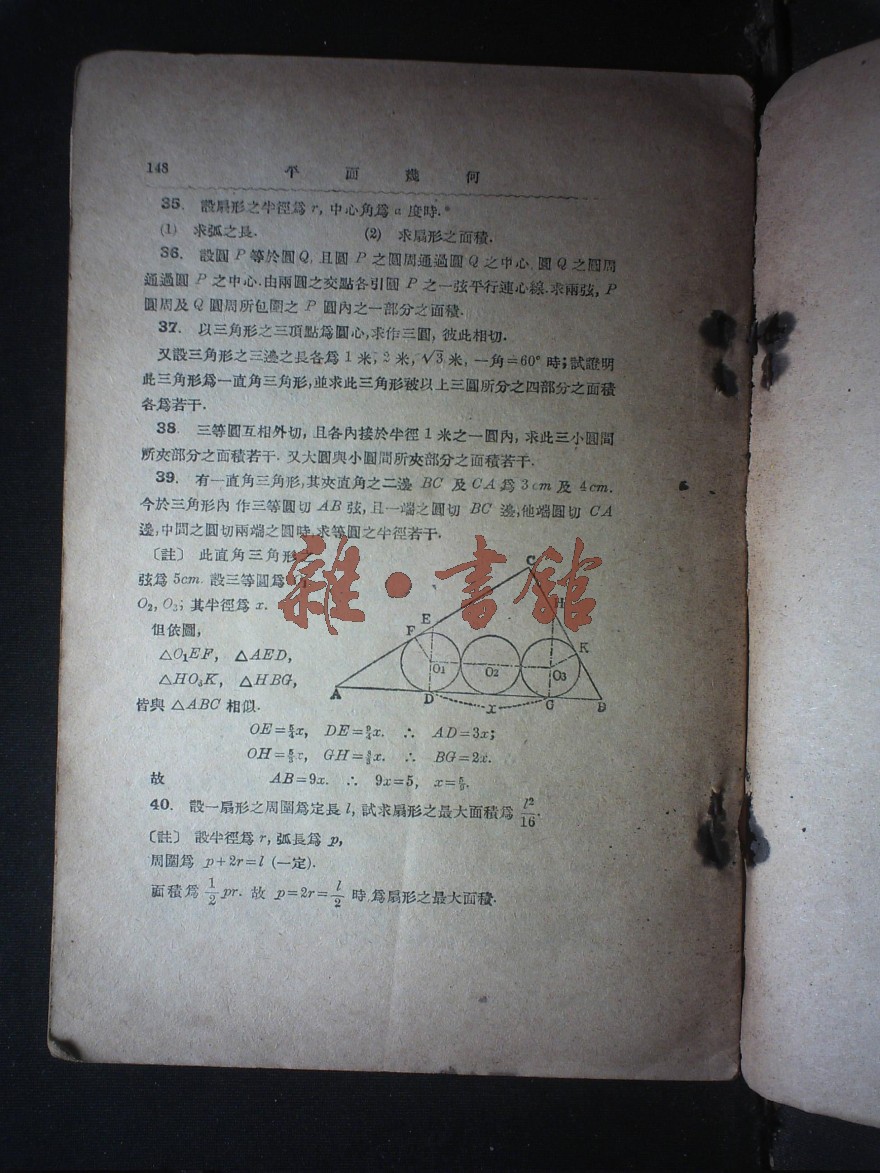 148 平面幾何
35. 設扇形之半徑爲 r, 中心角爲 α 度時.
(1) 求弧之長. (2) 求扇形之面積.
36. 設圓 P 等於圓 Q, 且圓 P 之圓周通過圓 Q 之中心, 圓 Q 之圓周
通過圓 P 之中心. 由兩圓之交點各引圓 P 之一弦平行連心線. 求兩弦, P
圓周及 Q 圓周所包圍之 P 圓內之一部分之面積.
37. 以三角形之三頂點爲圓心, 求作三圓, 彼此相切.
又設三角形之三邊之長各爲 1 米, 2 米, √3 米, 一角=60° 時; 試證明
此三角形爲一直角三角形, 並求此三角形被以上三圓所分之四部分之面積
各爲若干.
38. 三等圓互相外切, 且各內接於半徑 1 米之一圓內, 求此三小圓間
所夾部分之面積若干. 又大圓與小圓間所夾部分之面積若干.
39. 有一直角三角形, 其夾直角之二邊 BC 及 CA 爲 3cm 及 4cm.
今於三角形內作三等圓切 AB 弦, 且一端之圓切 BC 邊, 他端圓切 CA
邊, 中間之圓切兩端之圓時, 求等圓之半徑若干.
〔註〕 此直角三角形之
弦爲 5cm. 設三等圓爲
O₂, O₃; 其半徑爲 x.
但依圖,
△O₁EF, △AED,
△HO₃K, △HBG,
皆與 △ABC 相似.
C
H
E
F
K
O₁ O₂ O₃
A D x G B
OE=5/4x, DE=9/4x. ∴ AD=3x;
OH=5/3x, GH=8/3x. ∴ BG=2x.
故 AB=9x. ∴ 9x=5, x=5/9.
40. 設一扇形之周圍爲定長 l, 試求扇形之最大面積爲 l²/16.
〔註〕 設半徑爲 r, 弧長爲 p,
周圍爲 p+2r=l (一定).
面積爲 1/2 pr. 故 p=2r=l/2 時, 爲扇形之最大面積.
雜·書館